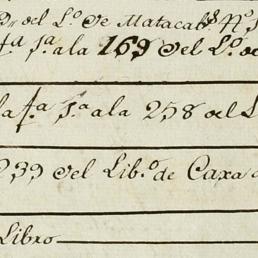 del L.º de Matacab.s N.º
f.a 1.a ala 169 del L.º de
la f.a 1.a ala 258 del L
239 del Lib.º de Caxa
Libro